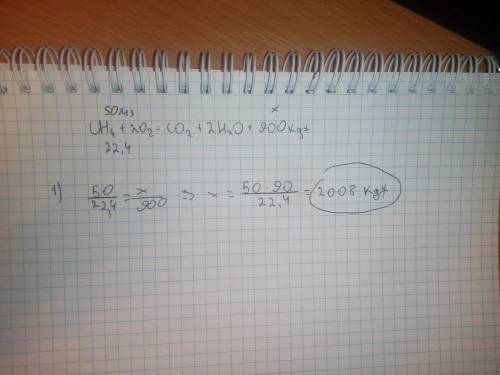 50мз x
CH4 + 2O2 = CO2 + 2H2O + 900кдж
22,4
1) 50/22,4 = x/900 => x = 50·90/22,4 = 2008 кдж